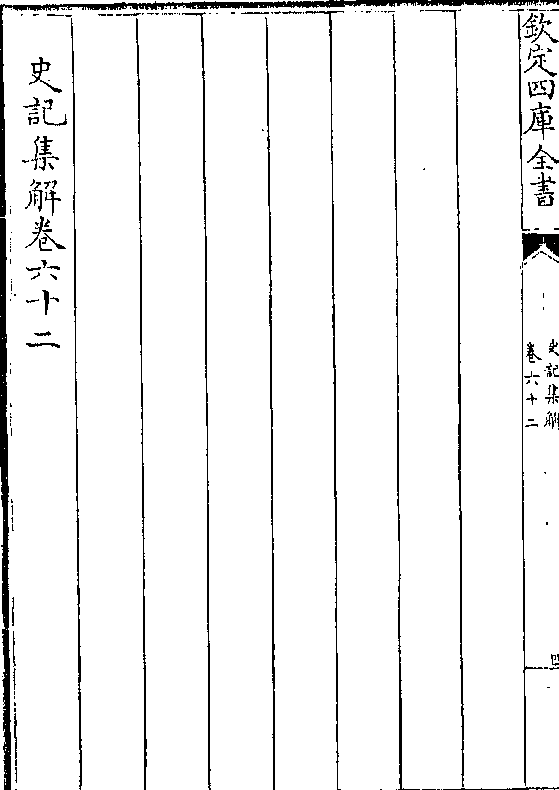 欽定四庫全書
史記集解
卷六十二
四
史記集解卷六十二